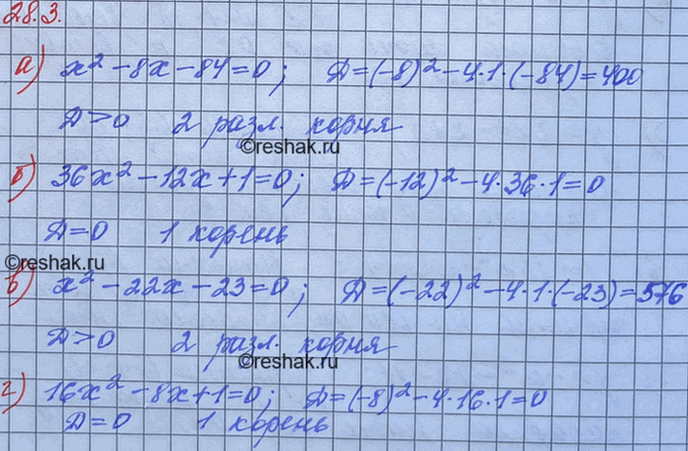 28.3.
а) x² - 8x - 84 = 0; D = (-8)² - 4·1·(-84) = 400
D > 0 2 разл. корня
©reshak.ru
б) 36x² - 12x + 1 = 0; D = (-12)² - 4·36·1 = 0
D = 0 1 корень
©reshak.ru
в) x² - 22x - 23 = 0; D = (-22)² - 4·1·(-23) = 576
D > 0 2 разл. корня
©reshak.ru
г) 16x² - 8x + 1 = 0; D = (-8)² - 4·16·1 = 0
D = 0 1 корень